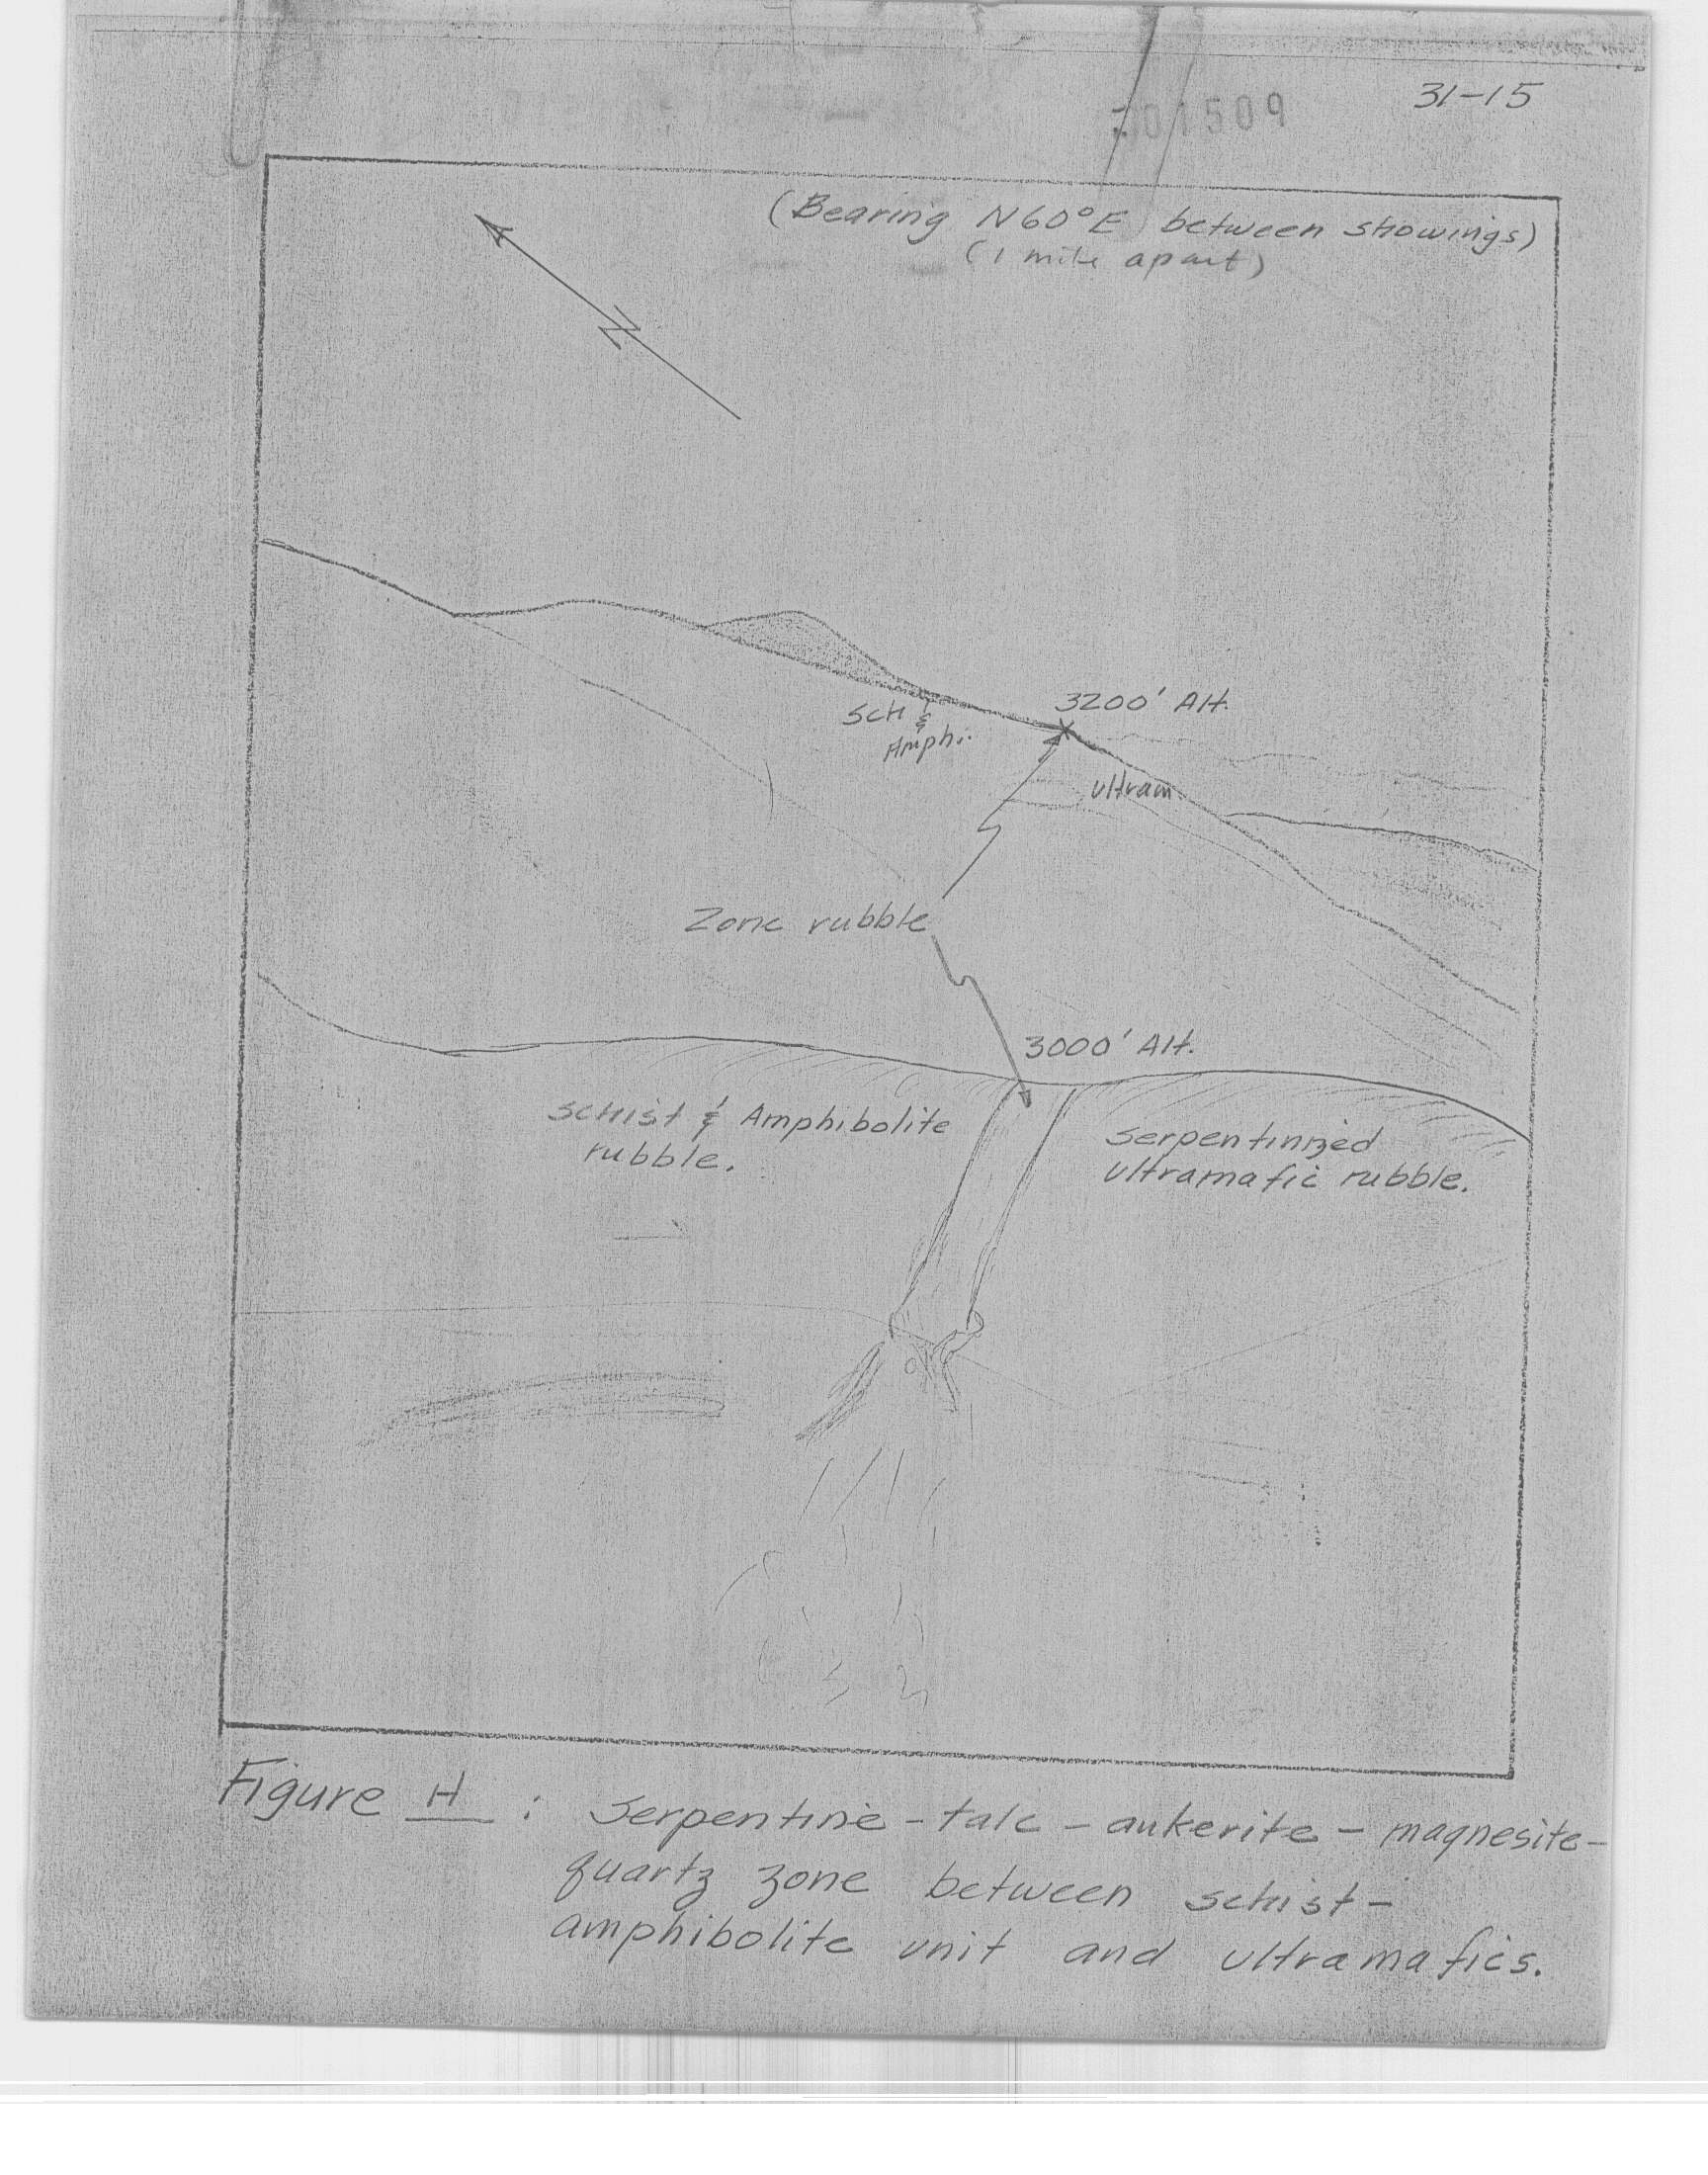 31-15
01509
(Bearing N60°E between showings)
(1 mile apart)
3200' Alt.
Sch &
Amphi.
Ultram.
Zone rubble
3000' Alt.
Schist & Amphibolite
rubble.
Serpentinized
Ultramafic rubble.
Figure H : Serpentine - talc - ankerite - magnesite-
quartz zone between schist-
amphibolite unit and ultramafics.